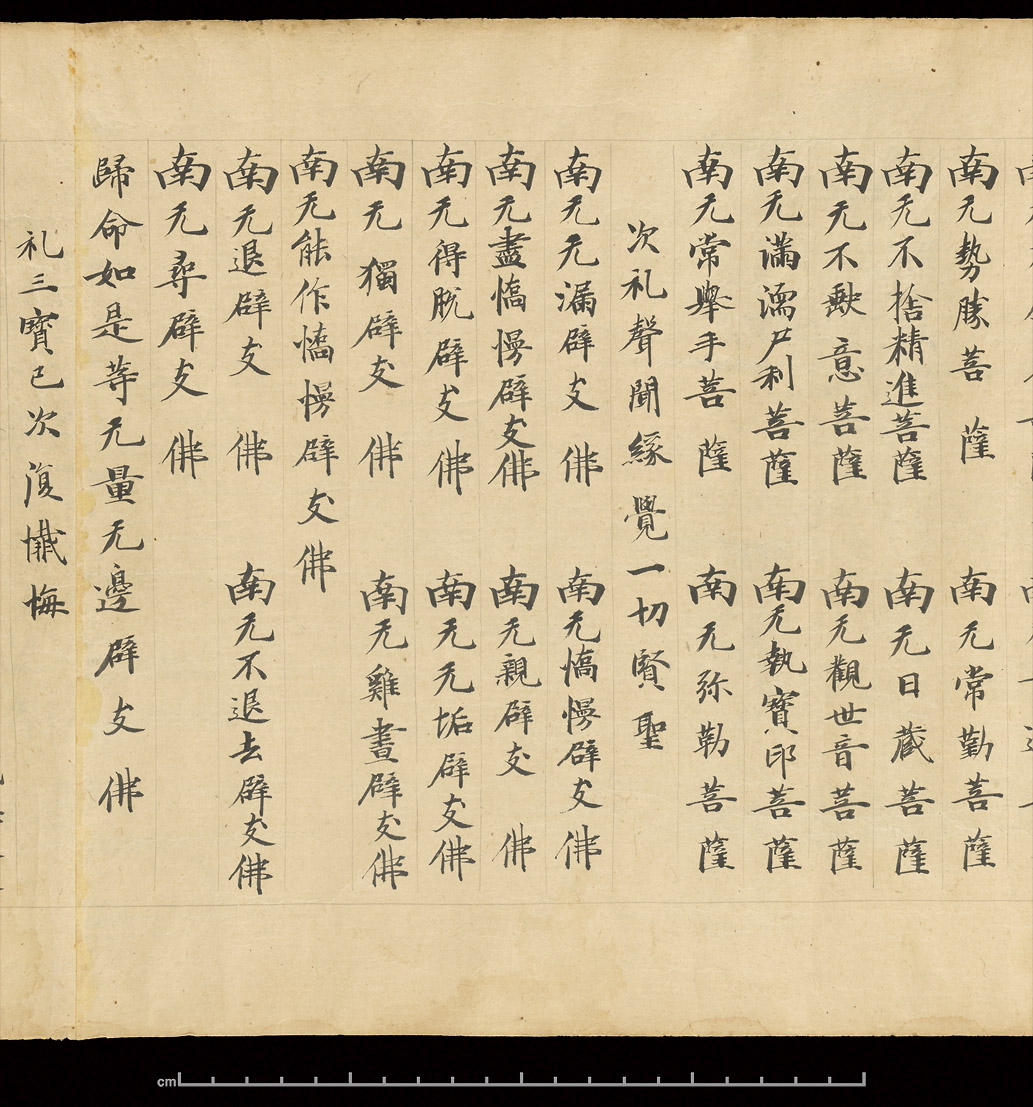 南无勢勝菩薩　南无常勤菩薩
南无不捨精進菩薩　南无日藏菩薩
南无不歇意菩薩　南无觀世音菩薩
南无滿濡尸利菩薩　南无執寶印菩薩
南无常舉手菩薩　南无弥勒菩薩
次礼聲聞緣覺一切賢聖
南无无漏辟支佛　南无憍慢辟支佛
南无盡憍慢辟支佛　南无親辟支佛
南无得脫辟支佛　南无无垢辟支佛
南无獨辟支佛　南无難晝辟支佛
南无能作憍慢辟支佛
南无退辟支佛　南无不退去辟支佛
南无尋辟支佛
歸命如是等无量无邊辟支佛
礼三寶已次復懺悔